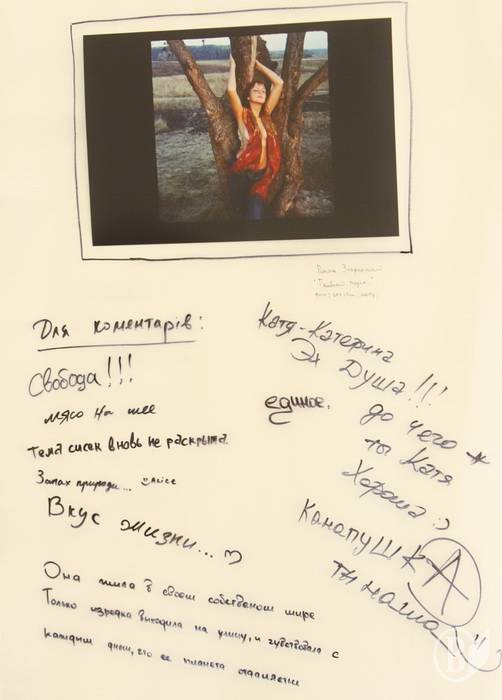 Для коментарів:
Свобода!!!
мясо на шее
Тема сисек вновь не раскрыта.
Запах природы... Alice
Вкус жизни...
Она жила в своем собственном мире
Только изредка выходила на улицу, и чувствовала с
каждым днем, что ее планета
Катя-Катерина
Эх Душа!!!
единое.
до чего
ты Катя
Хороша :)
КанапушкА
ты наша!!